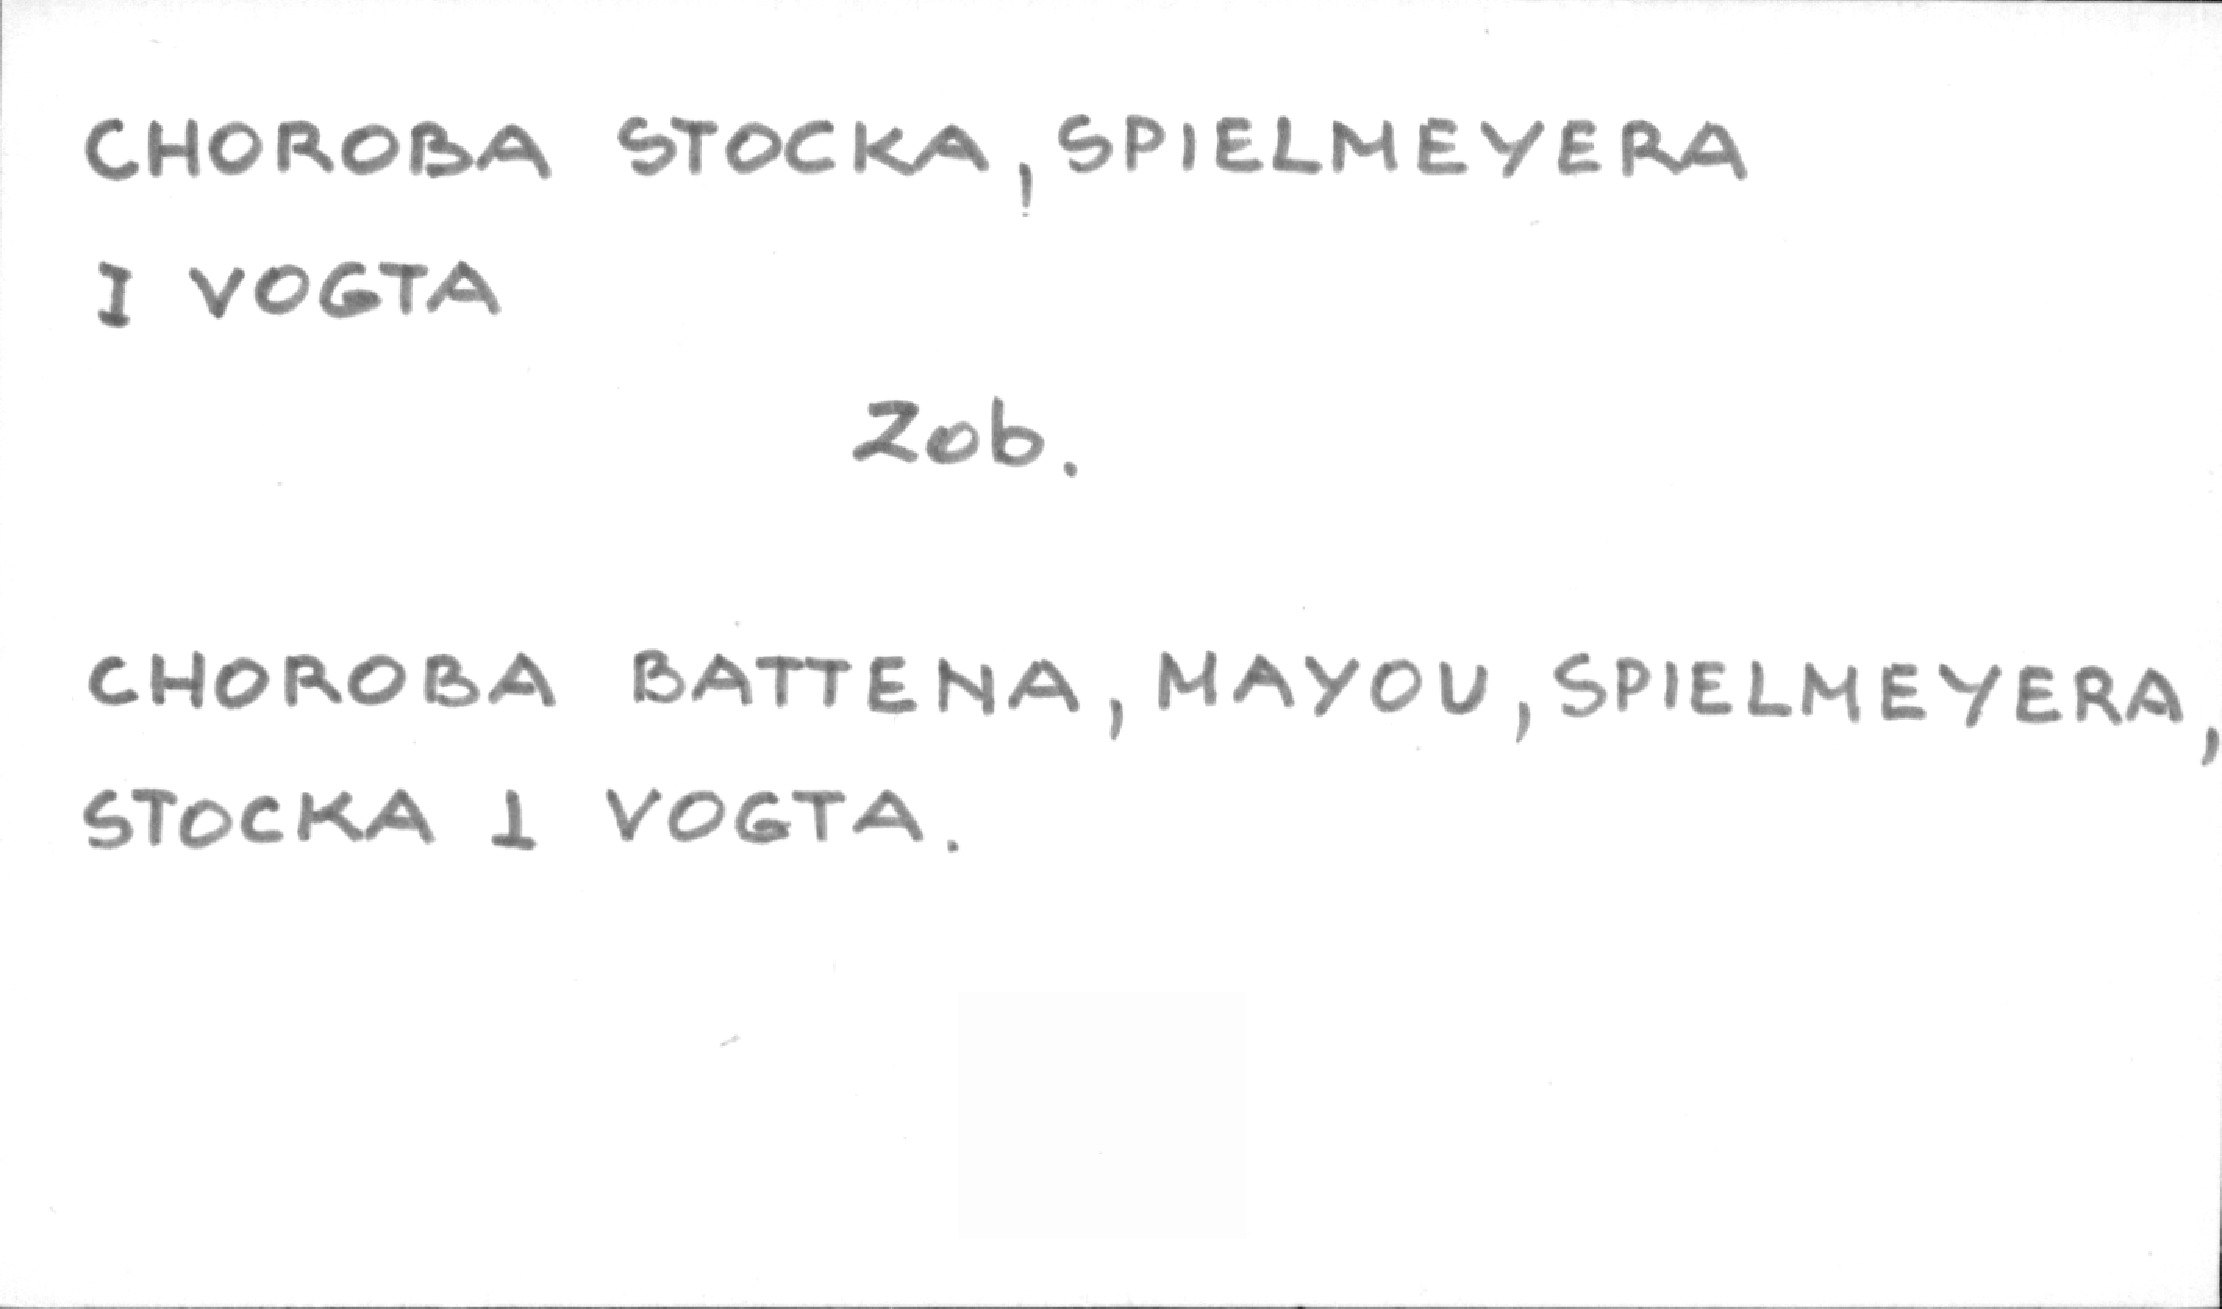 CHOROBA STOCKA, SPIELMEYERA
I VOGTA
Zob.
CHOROBA BATTENA, MAYOU, SPIELMEYERA,
STOCKA I VOGTA.